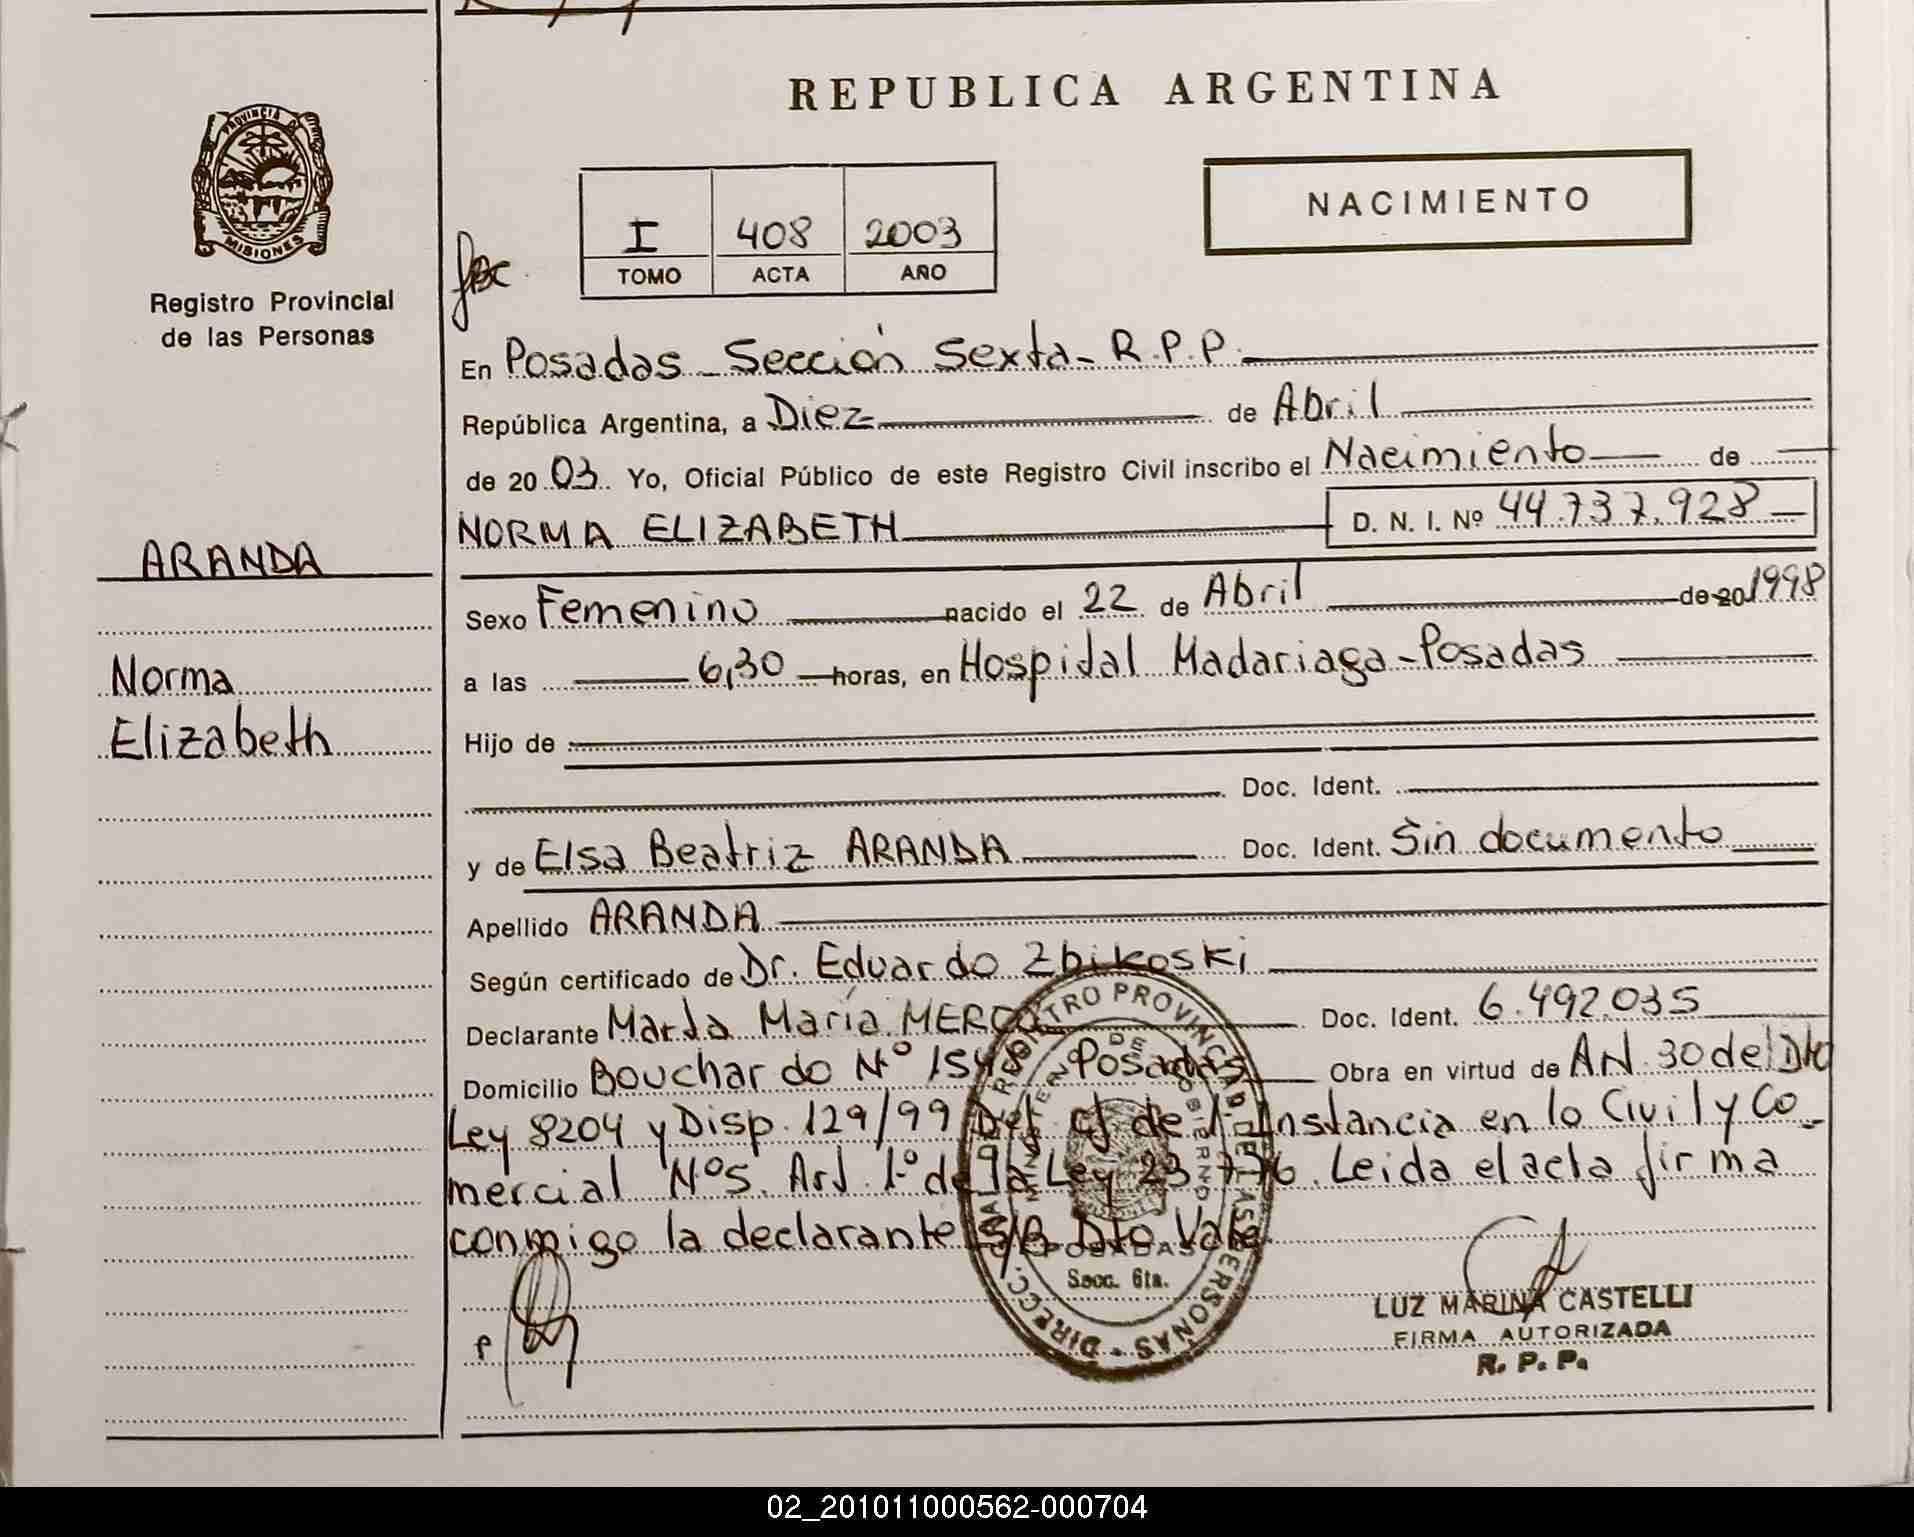 REPUBLICA ARGENTINA
PROVINCIA DE
MISIONES
Registro Provincial
de las Personas
NACIMIENTO
I 408 2003
TOMO ACTA AÑO
En Posadas - Sección Sexta - R.P.P.
República Argentina, a Diez de Abril
de 2003 Yo, Oficial Público de este Registro Civil inscribo el Nacimiento de
NORMA ELIZABETH D. N. I. Nº 44.737.928
ARANDA
Norma
Elizabeth
Sexo Femenino nacido el 22 de Abril de 20 1998
a las 6,30 horas, en Hospital Madariaga - Posadas
Hijo de
Doc. Ident.
y de Elsa Beatriz ARANDA Doc. Ident. Sin documento
Apellido ARANDA
Según certificado de Dr. Eduardo Zbikoski
Declarante Marta María Doc. Ident. 6.492.035
Domicilio Bouchardo Nº 1548 Posadas Obra en virtud de Art. 30 del Dto
Ley 8204 y Disp. 129/99 Def. de 1º Instancia en lo Civil y Co-
mercial Nº5. Art. 1º de la Ley 23.776. Leida el acta firma
conmigo la declarante S/R Dto Vale
DIRECC. REGISTRO PROVINCIAL DE LAS PERSONAS
MINISTERIO DE GOBIERNO
POSADAS
Secc. 6ta.
LUZ MARINA CASTELLI
FIRMA AUTORIZADA
R. P. P.
02_201011000562-000704